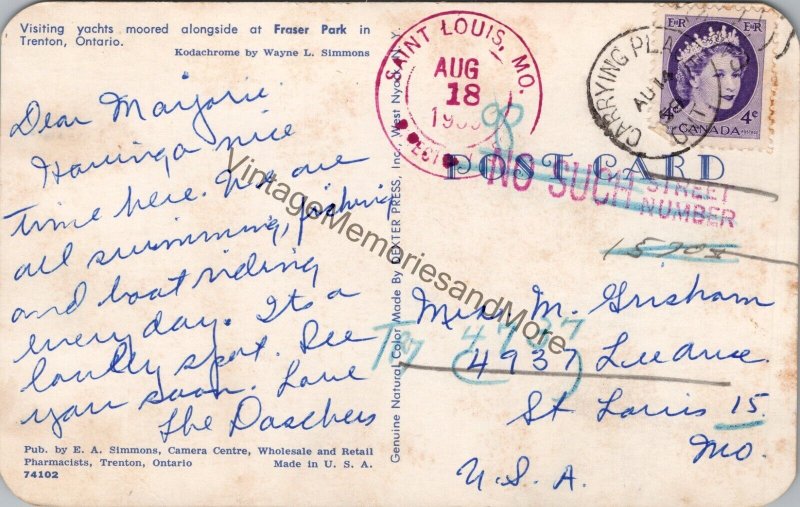 Visiting yachts moored alongside at Fraser Park in
Trenton, Ontario.
Kodachrome by Wayne L. Simmons
Dear Marjorie
Having a nice
time here. We are
all swimming, fishing
and boat riding
every day. Its a
lovely spot. See
you soon. Love
The Daschers
Pub. by E. A. Simmons, Camera Centre, Wholesale and Retail
Pharmacists, Trenton, Ontario Made in U. S. A.
74102
Genuine Natural Color Made By DEXTER PRESS, Inc., West Nyack, N. Y.
SAINT LOUIS, MO.
AUG
18
CARRYING PLACE
AU 14
ONT
E R E R
4¢
CANADA
POST CARD
NO SUCH STREET
NUMBER
Miss M. Grisham
Try 4737
4937 Lee Ave.
St Louis 15
Mo.
U.S.A.
VintageMemoriesandMore